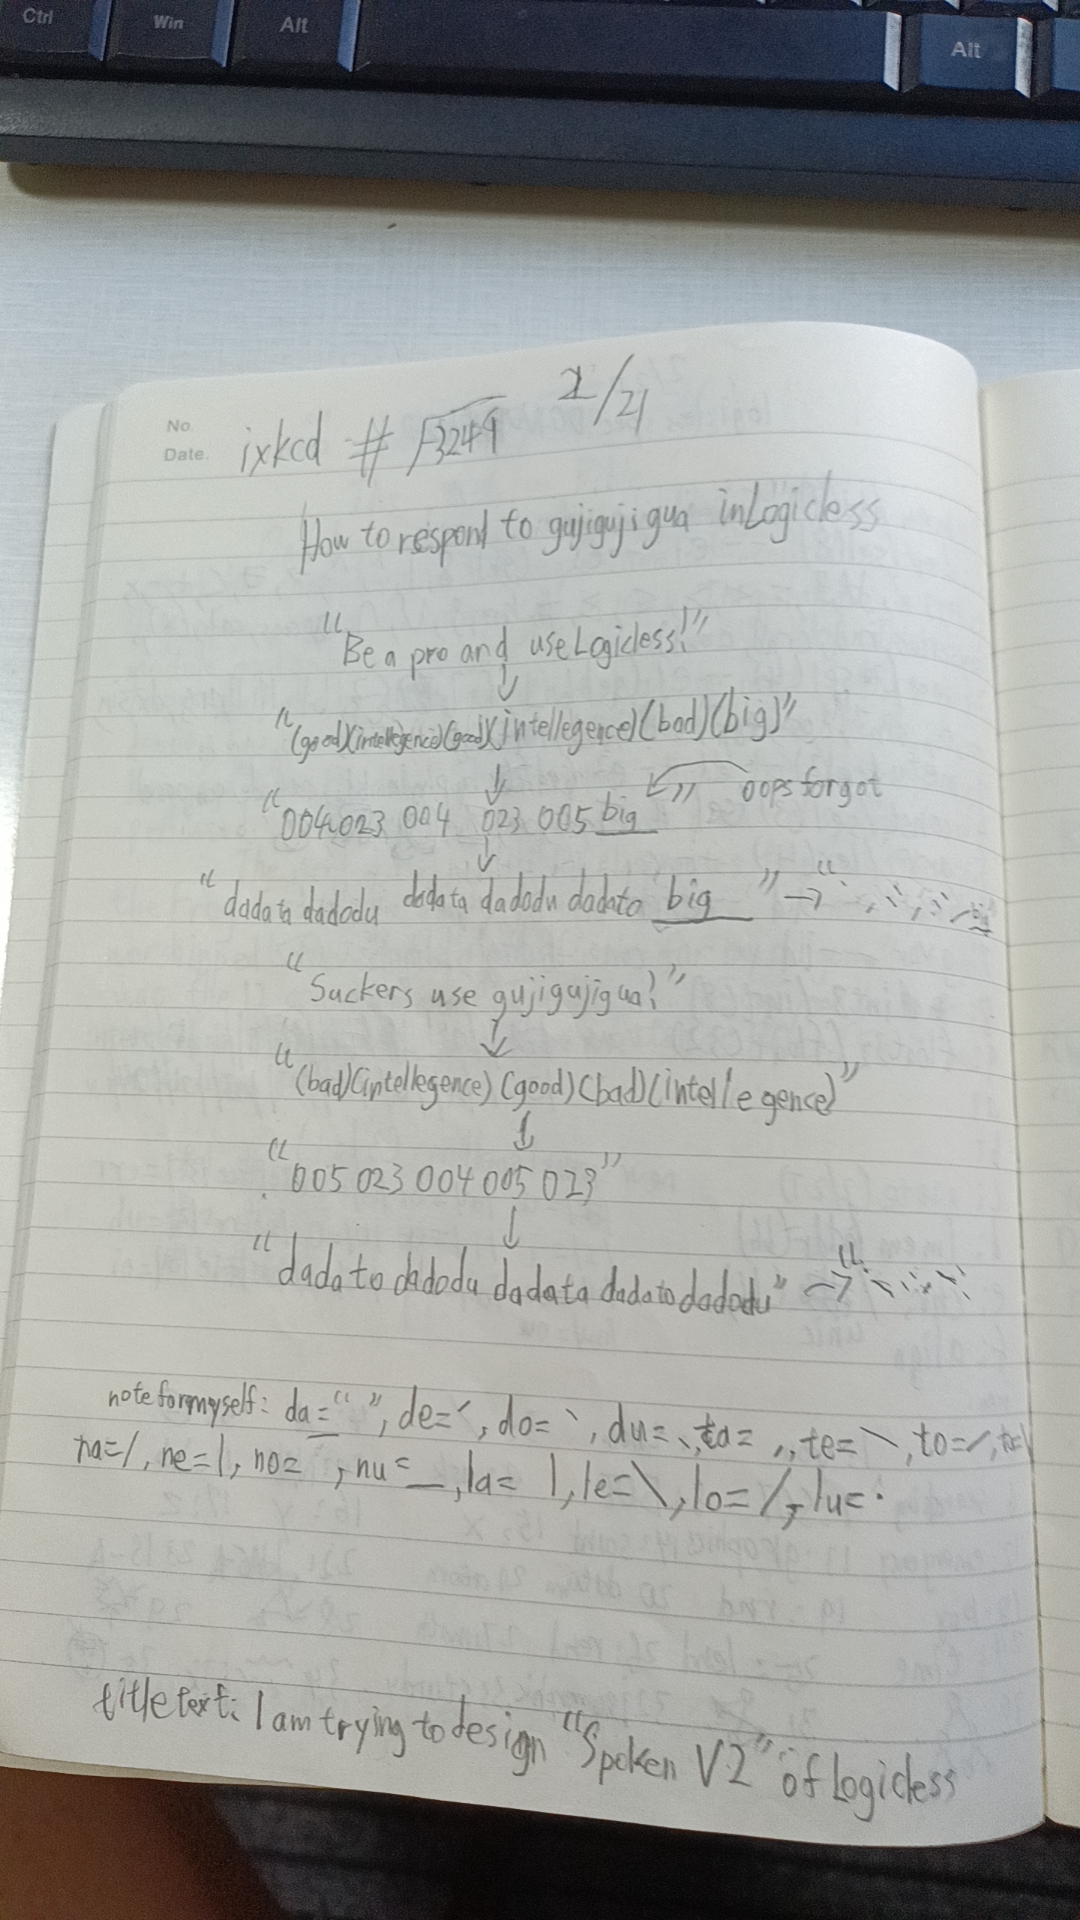 Ctrl
Win
Alt
Alt
No.
Date.
ixkcd # √3249
2/21
How to respond to gujigujigua in Logicless
"Be a pro and use Logicless!"
↓
"(good)(intellegence)(good)(intellegence)(bad)(big)"
↓
"004 023 004 023 005 big" ← oops forgot
↓
"dadata dadodu dadata dadodu dadato big" →
"Suckers use gujigujigua!"
↓
"(bad)(intellegence)(good)(bad)(intellegence)"
↓
"005 023 004 005 023"
↓
"dadato dadodu dadata dadato dadodu" →
note for myself: da=" ", de=ˊ, do=ˋ, du=、, ta=, te=\, to=
na=/, ne=|, no= , nu=_, la= |, le=\, lo=/, lu=·
title text: I am trying to design "Spoken V2" of logicless